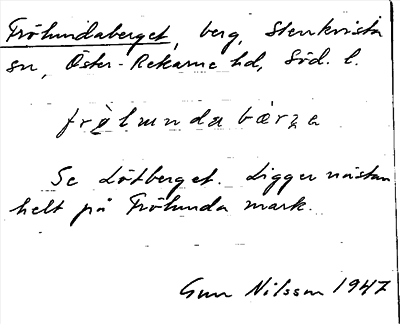 Frölundaberget, berg, Stenkvista
sn, Öster-Rekarne hd, Söd. l.
frö̀lunda bærʒa
Se Lötberget. Ligger nästan
helt på Frölunda mark.
Gun Nilsson 1947